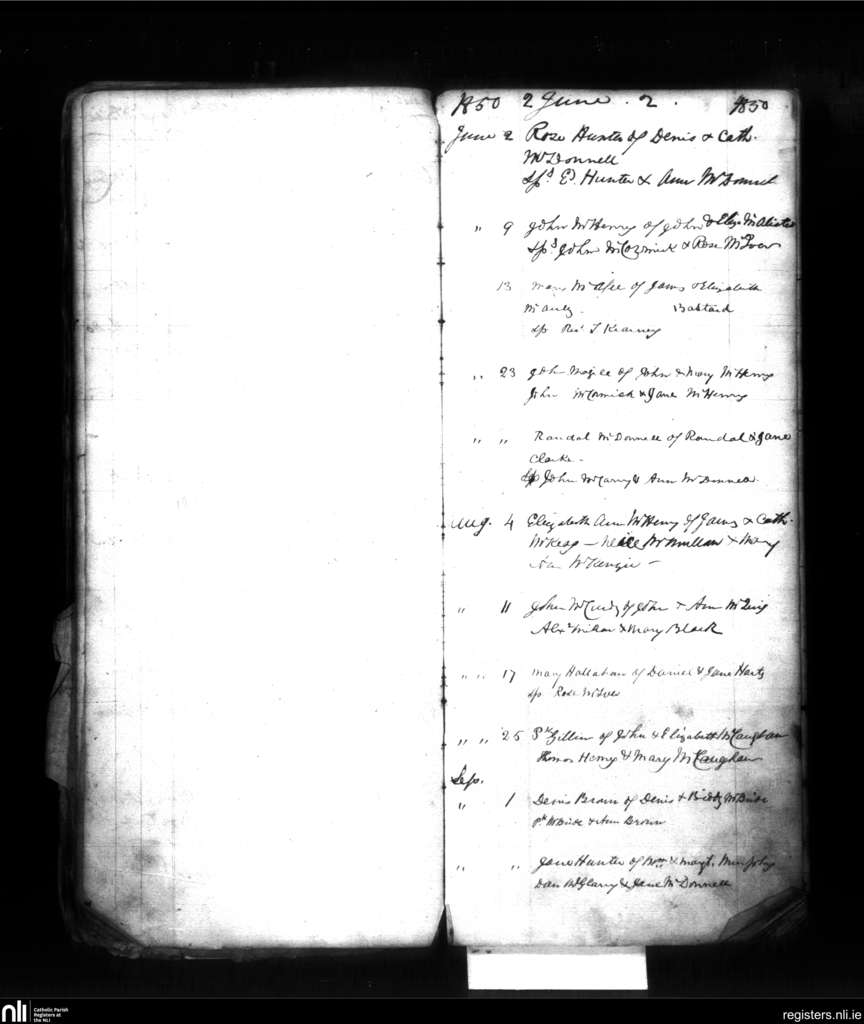 1850 2 June . 2 . 1850
June 2 Rose Hunter of Denis & Cath.
McDonnell
Sps Ed Hunter & Ann McDonnell
" 9 John McHenry of John & Eliza McAlister
Sps John McCormick & Rose McIver
13 Mary McAfee of James & Elizabeth
McAuly Bastard
sp Rev J Kearney
" 23 John Magee of John & Mary McHenry
John McCormick & Jane McHenry
" " Randal McDonnell of Randal & Jane
Clarke -
Sp John McCarry & Ann McDonnell
Aug. 4 Elizabeth Ann McHenry of James & Cath.
- McMullan & Mary
Ann McKenzie -
" 11 John McCurdy of John & Ann
Alexr & Mary Black
" " 17 Mary Hallahan of Daniel & Jane
sp Rose McIver
" " 25 Pk Gillan of John & Elizabeth McCaughan
Thomas Henry & Mary McCaughan
Sep.
" 1 Denis Brown of Denis & Biddy McBride
Pk McBride & Ann Brown
" " Jane Hunter of Wm & Margt. Murphy
Dan & Jane McDonnell
nli
Catholic Parish
Registers at
the NLI
registers.nli.ie